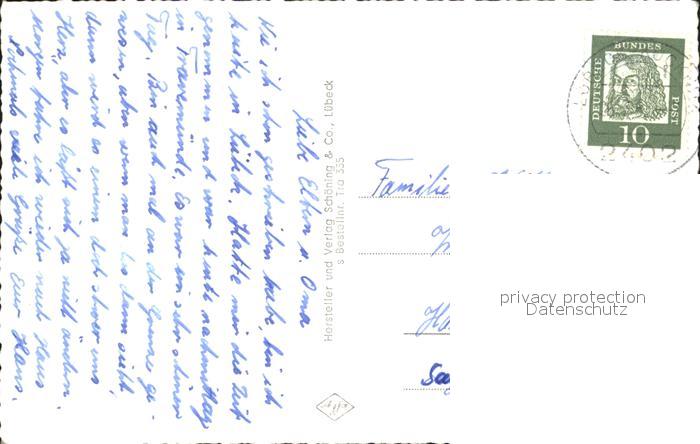 Liebe Eltern u. Oma
Wie ich schon geschrieben habe, bin ich
heute in Lübeck. Hatte mir die Zeit
genommen und war heute nachmittag
in Travemünde. Es war ein sehr schöner
Tag. Bin auch mal an der Grenze ge-
wesen, aber wenn man das dann sieht,
dann wird es einem doch schwer ums
Herz, aber es läßt sich ja nicht ändern.
Morgen fahre ich wieder nach Haus
Nochmals viele Grüße Euer Hans.
Hersteller und Verlag Schöning & Co., Lübeck
s Bestellnr. Tra 355
DEUTSCHE
BUNDES
POST
10
2402
Familie
privacy protection
Datenschutz